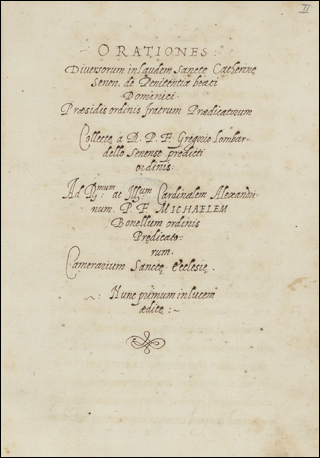 II
ORATIONES
Diversorum in laudem Sanctę Catherinę
Senen. de Penitentia beati
Dominici
Præsidis ordinis fratrum Prædicatorum
Collectę a R. P. F. Gregorio Lombar-
dello Senense predicti
ordinis.
Ad Rmum ac Illum Cardinalem Alexandri-
num. P. F. MICHAELEM
Bonellum ordinis
Predicato-
rum.
Camerarium Sanctę Ecclesię.
Nunc primum in lucem
ædite